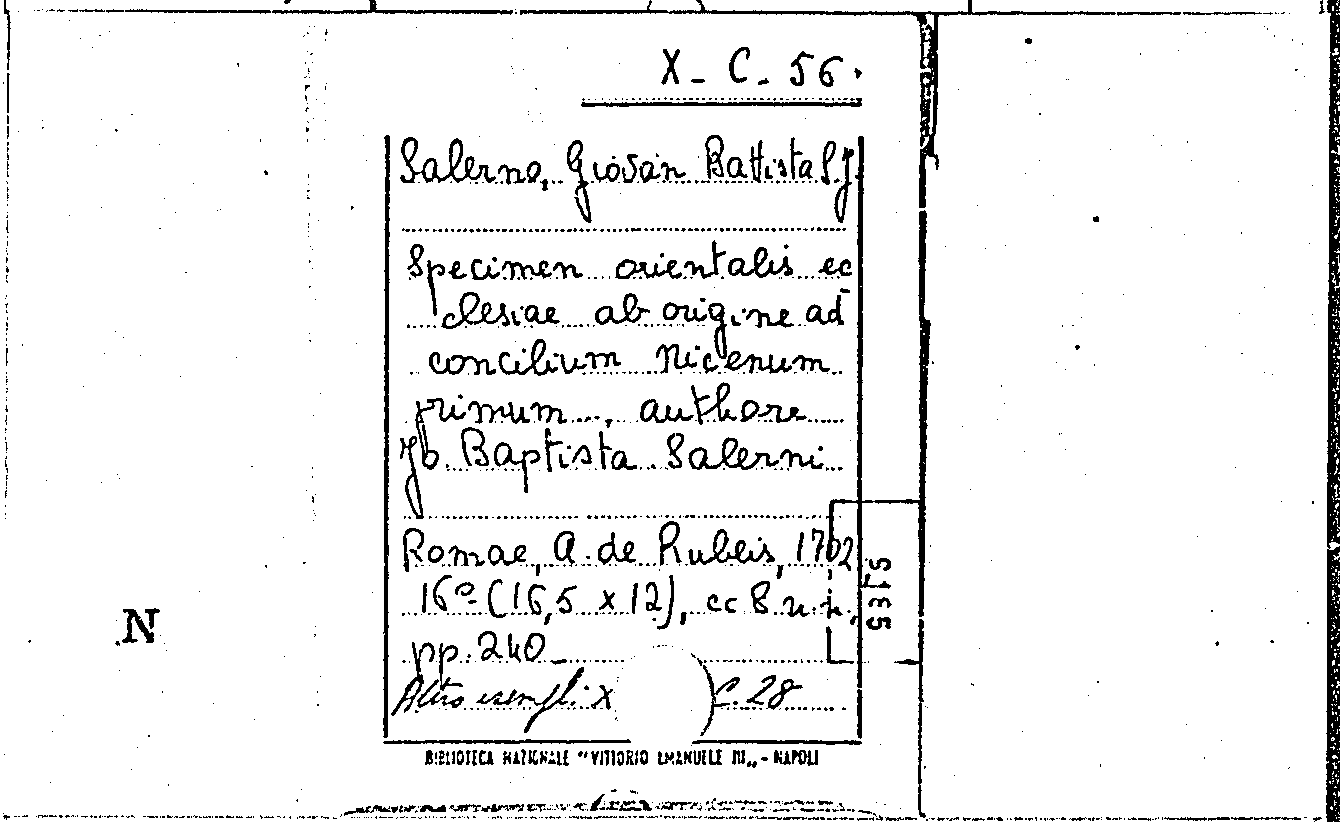 X - C - 56.
Salerno, Giovan Battista S.J.
Specimen orientalis ec
clesiae ab origine ad
concilium Nicenum
primum..., authore
Jo. Baptista Salerni
Romae, A. de Rubeis, 1702
16º (16,5 x 12), cc 8 n.n.,
pp. 240
Altro esempl: X C. 28
N
BIBLIOTECA NAZIONALE "VITTORIO EMANUELE III„ - NAPOLI